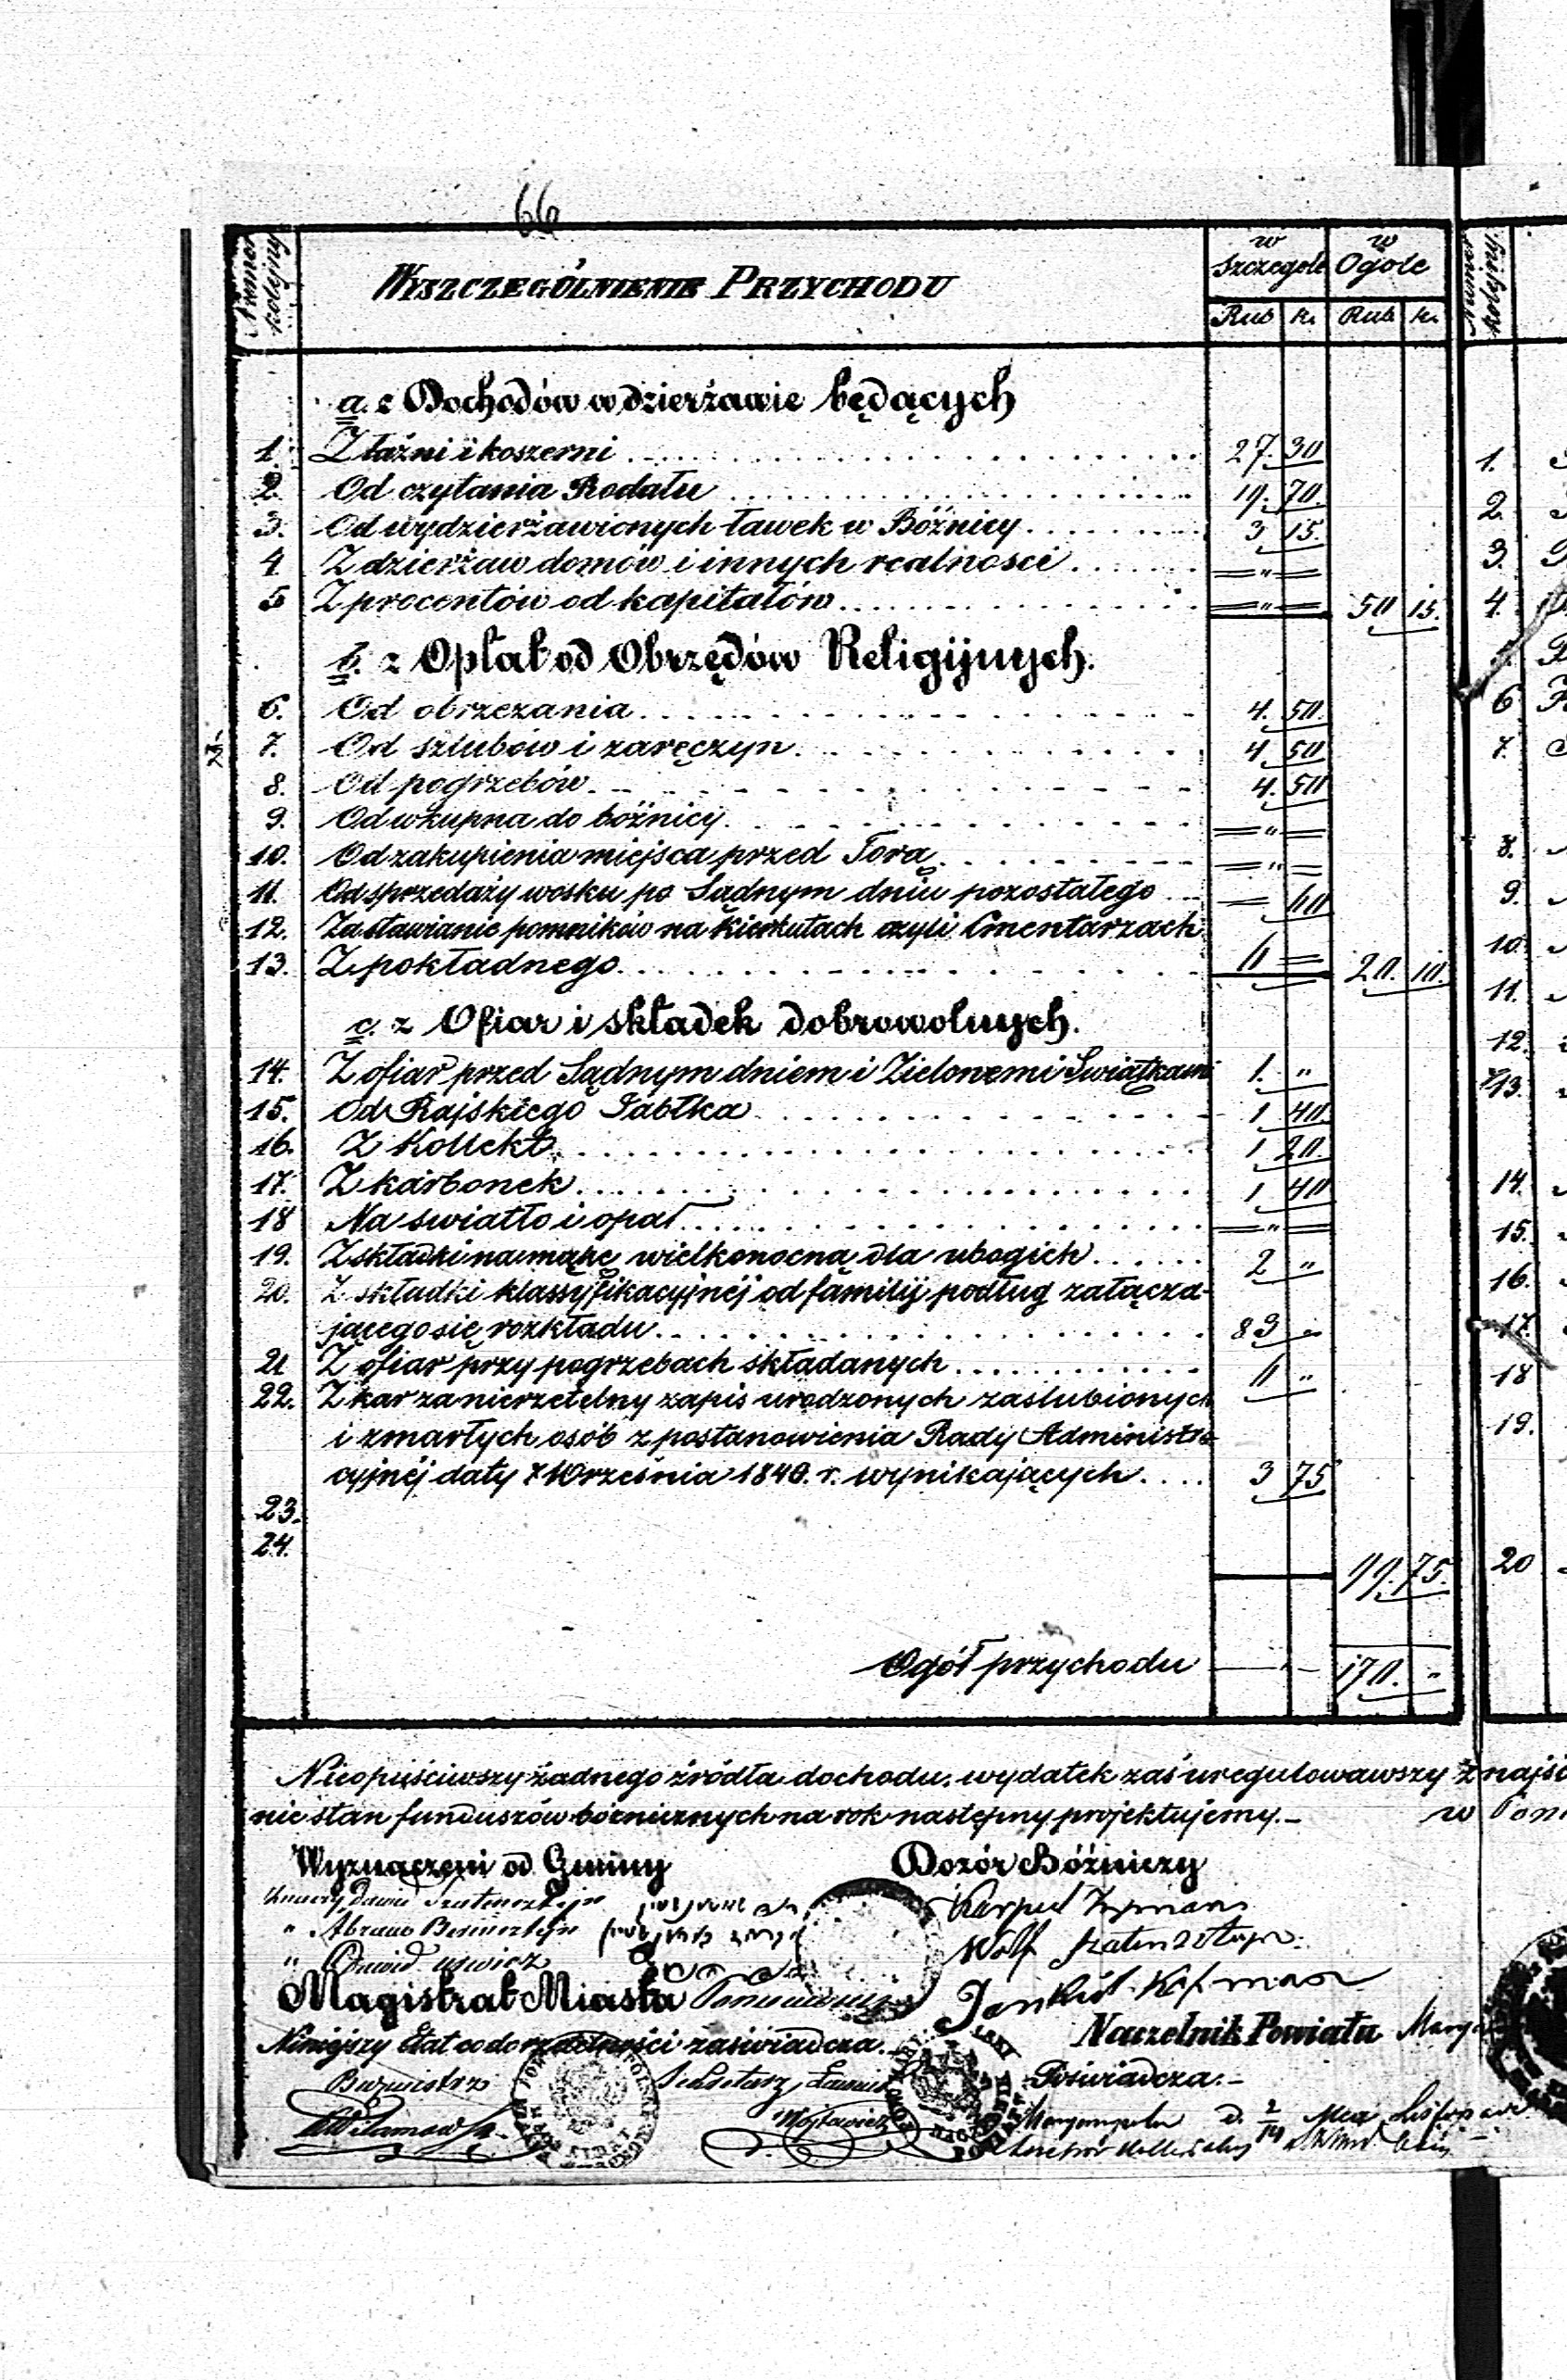 66
Numer kolejny
WYSZCZEGÓLNIENIE PRZYCHODU
w szczególe
w Ogóle
Rub k. Rub k.
Numer kolejny
a. z Dochodów w dzierżawie będących
1. Z łaźni i koszerni 27. 30
2. Od czytania Rodału 19. 70.
3. Od wydzierżawionych ławek w Bóżnicy 3 15.
4 Z dzierżaw domów i innych realności = " =
5 Z procentów od kapitałów = " = 50 15.
b. z Opłat od Obrzędów Religijnych.
6. Od obrzezania 4. 50.
7. Od szlubów i zaręczyn 4 50
8. Od pogrzebów 4. 50
9. Od wkupna do bóżnicy = " =
10. Od zakupienia miejsca przed Torą = " =
11. Od sprzedaży wosku po Sądnym dniu pozostałego = 60
12. Za stawianie pomników na Kierkutach czyli Cmentarzach
13. Z pokładnego 6 = 20. 10.
c. z Ofiar i składek dobrowolnych.
14. Z ofiar przed Sądnym dniem i Zielonemi Swiątkami 1. "
15. Od Rajskiego Jabłka 1 40.
16. Z Kollekt 1 20.
17. Z karbonek 1 40
18 Na swiatło i opał = " =
19. Z składki na mąkę wielkonocną dla ubogich 2 "
20. Z składki klassyfikacyjnéj od familij podług załącza-
jącego się rozkładu 89 "
21 Z ofiar przy pogrzebach składanych "
22. Z kar za nierzetelny zapis urodzonych zaslubionych
i zmarłych osób z postanowienia Rady Administra
cyjnéj daty 7 Września 1840. r. wynikających 3 75
23.
24.
99. 75.
Ogół przychodu 170. "
Nieopuściwszy żadnego źródła dochodu, wydatek zaś uregulowawszy
nie stan funduszów bóżnicznych na rok następny projektujemy.
Wyznaczeni od Gminy
Dozór Bóżniczy
Dawid
" Abram
" Dawid
Wolf
Magistrat Miasta
Niniejszy Etat co do rzetelności zaświadcza.
Naczelnik Powiatu
Poświadcza.
Burmistrz
Sekretarz
1.
2.
3.
4.
6
7.
8.
9.
10.
11.
12.
13.
14.
15.
16.
17.
18
19.
20